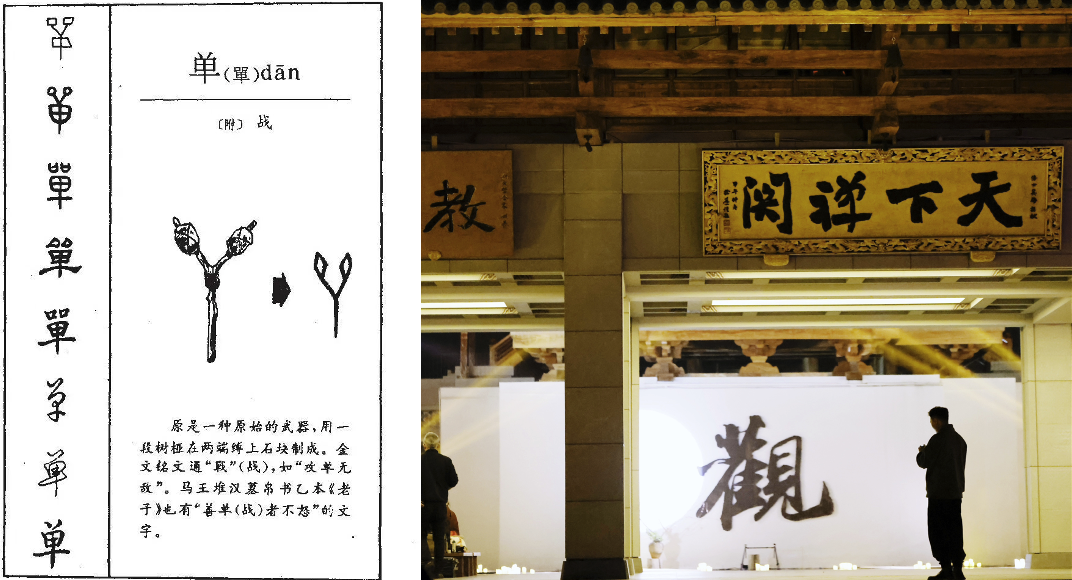 单(單)dān
〔附〕 战
原是一种原始的武器,用一
段树桠在两端缚上石块制成。金
文铭文通“戰”(战),如“攻单无
敌”。马王堆汉墓帛书乙本《老
子》也有“善单(战)者不怒”的文
字。
天下禅関
教
觀